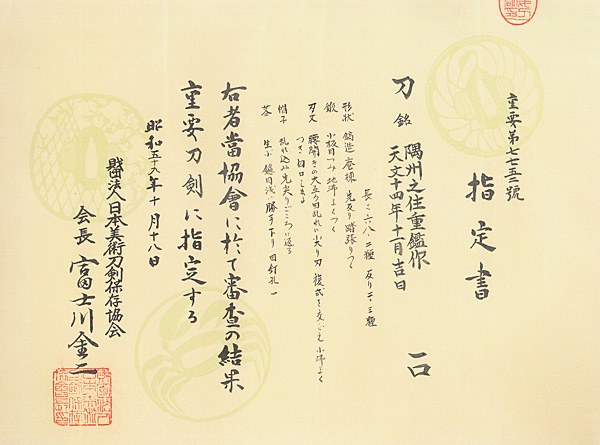 重要第七七五二號
指定書
刀 銘 隅州之住重鑑作 一口
天文十四年十一月吉日
長さ六八・二糎 反り二・三糎
形状 鎬造 庵棟 先反り 踏張りつく
鍛 小板目つみ 地沸よくつく
刃文 腰開きの大五の目乱れ 尖り刃 複式を交じえ 小沸よく
つき 匂口しまる
帽子 乱れ込み 先尖りごころに返る
茎 生ぶ 鑢目浅い勝手下り 目釘孔一
右者當協會に於て審査の結果
重要刀剣に指定する
昭和五十六年十月十八日
財団法人日本美術刀剣保存協会
会長 富士川金二